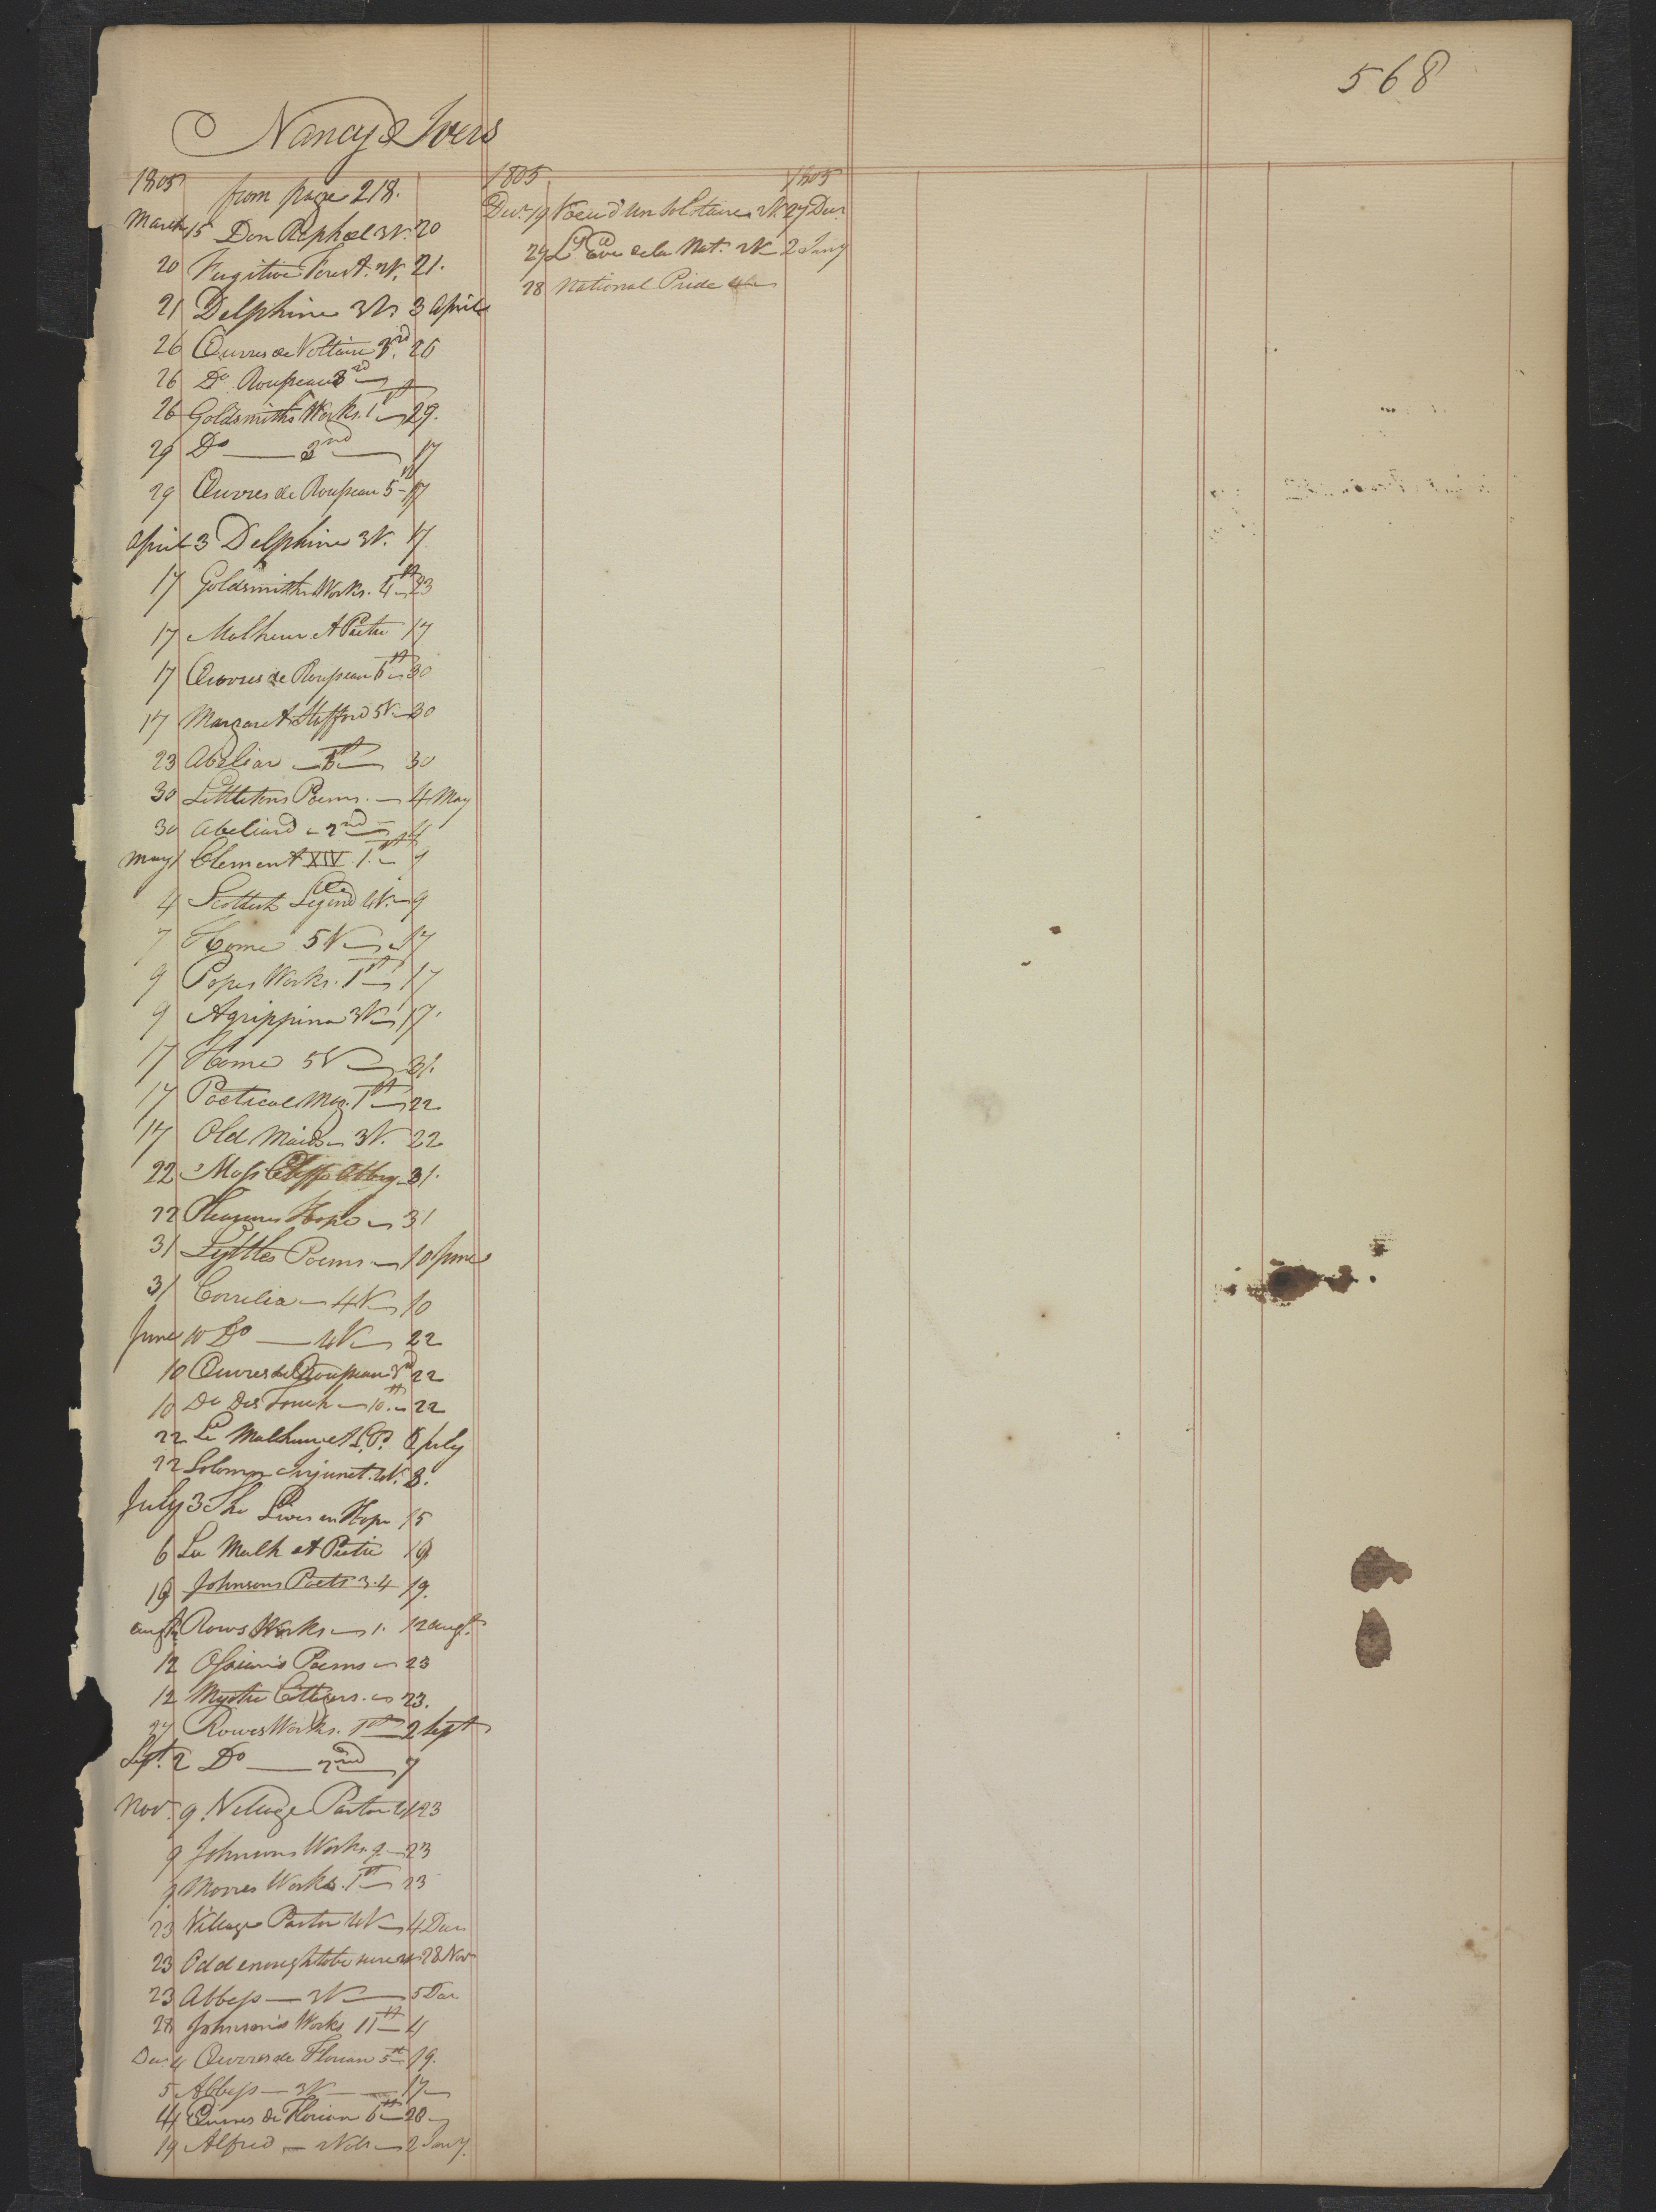 568
Nancy Ivers
1805 from page 218.
March 15 Don Raphael 3V. 20
20 Fugitive Forest. V. 21.
21 Delphine 3Vs 3 April
26 Œuvres de Voltaire 3rd. 26
26 Do Rousseau 3rd
26 Goldsmiths Works. 1st 29.
29 Do 3nd 17
29 Œuvres de Rousseau 5th 17
April 3 Delphine 3V. 17
17 Goldsmiths Works. 4th 23
17 Malheur et Pitie 17
17 Œuvres de Rousseau 6th 30
17 Margaret Stafford 5V 30
23 Abeliar 30
30 Littletons Poems. 4 May
30 Abeliard 2nd 4
May 1 Clement XIV. 1st 7
4 Scottish Legend 4V. 9
7 Home 5V 17
9 Popes Works. 1st 17
9 Agrippina 3V 17.
17 Home 5V 31.
17 Poetical Mag. 1st 22
17 Old Maids 3V. 22
22 Moss Cliffe Abbey 31.
22 Pleasures Hope 31
31 Lyttles Poems 10 June
31 Correlia 4V 10
June 10 Do 4V 22
10 Œuvres de Rousseau 3rd 22
10 Do Des Touch 10th 22
22 Le Malheur et L. P. 6 July
22 Solemn Injunct. 4V. 3.
July 3 She Lives in Hope 15
6 Le Malh et Pitie 19
19 Johnsons Poets 3.4 19.
Augt Rows Works 1. 12 augt.
12 Ossian's Poems 23
12 Mystic Cottager 23.
27 Rowes Works. 1st 2 Sept
Sept. 2 Do 2nd 7
Nov. 9. Village Pastor 23
9 Johnsons Works. 9 23
9 Moores Works. 1st 23
23 Village Pastor 4V 4 Dec
23 Odd enough to be sure 2V 28 Nov
23 Abbess 3V 5 Dec
28 Johnson's Works 11th 4
Dec 4 Œuvres de Florian 5th 19.
5 Abbess 3V 17
4 Œuvres de Florian 6th 28
19 Alfred 2Vols 2 Jany.
1805 1805
Dec. 19 Voeu d'un Solitaire 2V. 27 Dec
27 Lde la Nat. 2V 2 Jany
28 National Pride